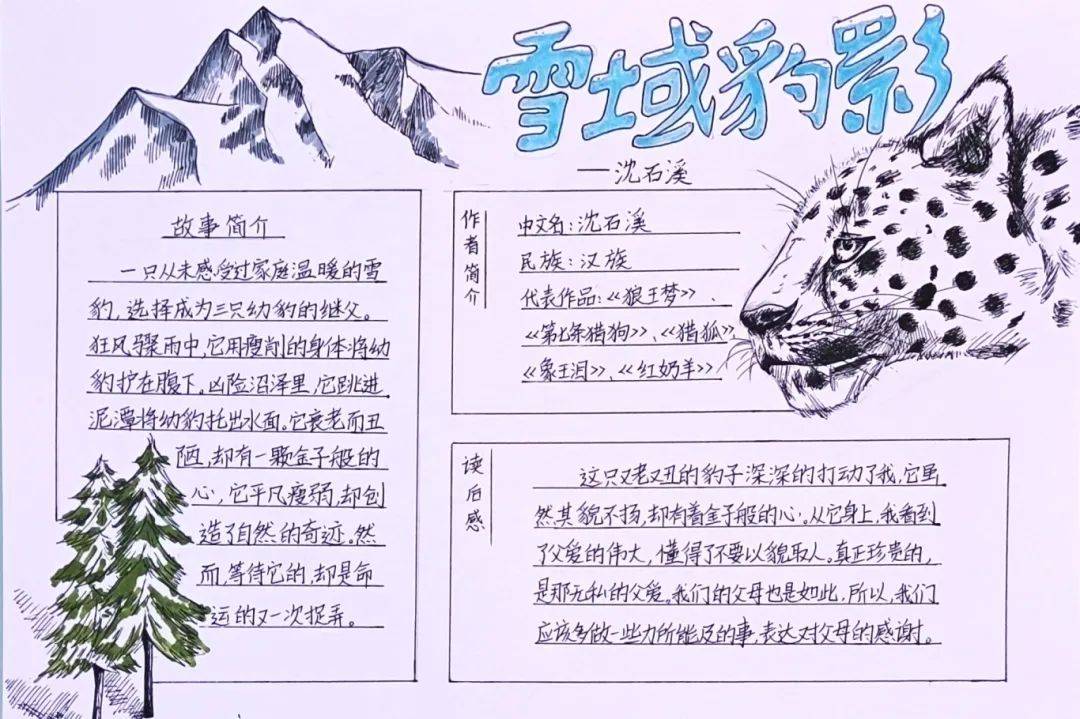 雪域豹影
——沈石溪
故事简介
一只从未感受过家庭温暖的雪
豹,选择成为三只幼豹的继父。
狂风骤雨中,它用瘦削的身体将幼
豹护在腹下。凶险沼泽里,它跳进
泥潭将幼豹托出水面。它衰老而丑
陋,却有一颗金子般的
心,它平凡瘦弱,却创
造了自然的奇迹。然
而,等待它的,却是命
运的又一次捉弄。
作者简介
中文名:沈石溪
民族:汉族
代表作品:《狼王梦》、
《第七条猎狗》、《猎狐》
《象王泪》、《红奶羊》
读后感
这只又老又丑的豹子深深的打动了我,它虽
然其貌不扬,却有着金子般的心。从它身上,我看到
了父爱的伟大,懂得了不要以貌取人。真正珍贵的,
是那无私的父爱。我们的父母也是如此,所以,我们
应该多做一些力所能及的事,表达对父母的感谢。